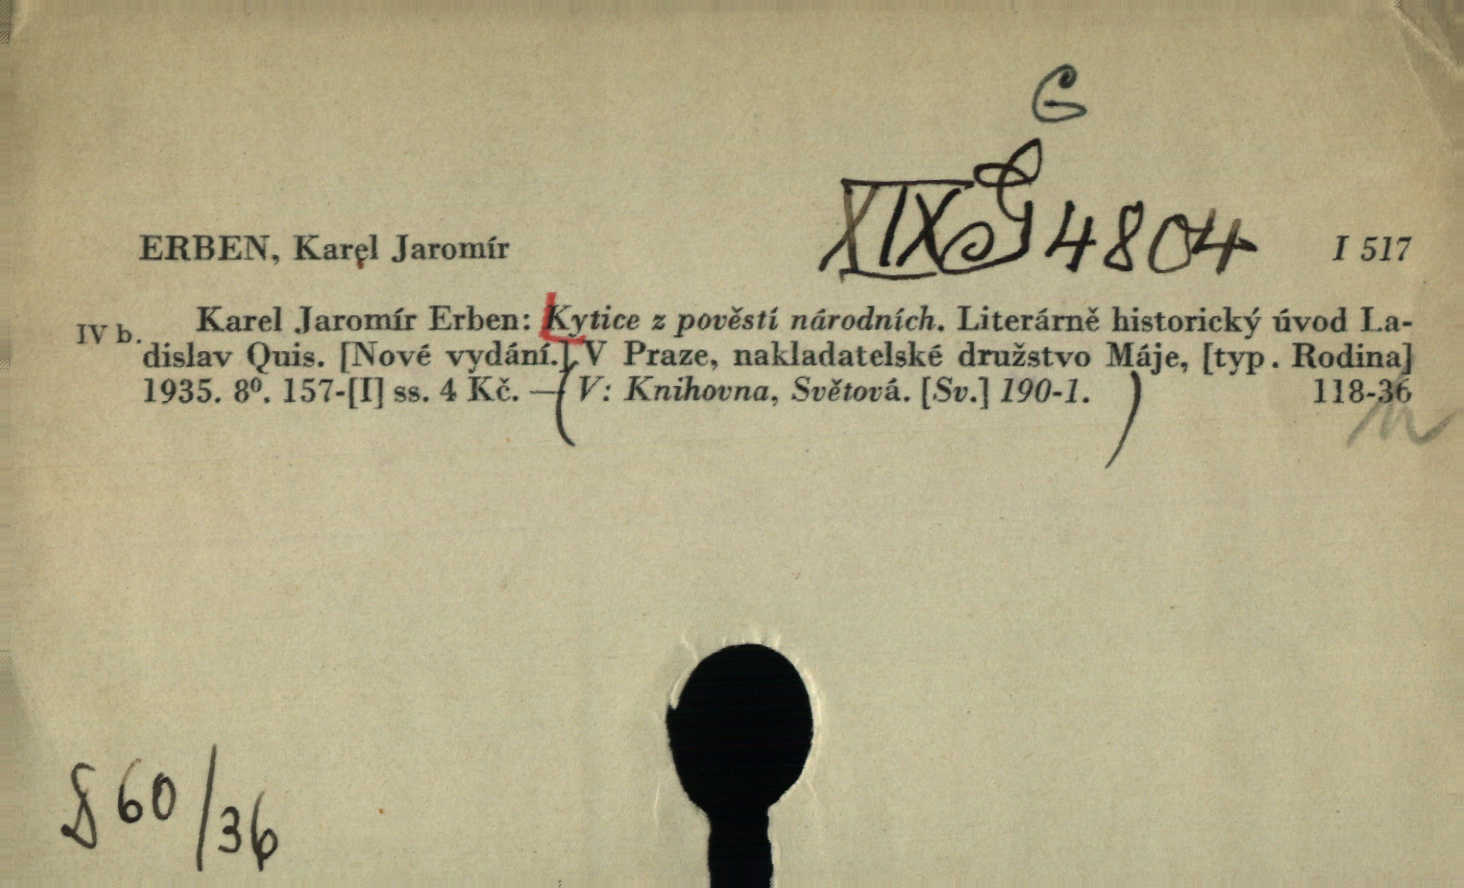 G
XIX G 4804
ERBEN, Karel Jaromír I 517
IV b. Karel Jaromír Erben: Kytice z pověstí národních. Literárně historický úvod La-
dislav Quis. [Nové vydání.] V Praze, nakladatelské družstvo Máje, [typ. Rodina]
1935. 8⁰. 157-[I] ss. 4 Kč. — (V: Knihovna, Světová. [Sv.] 190-1. ) 118-36
60/36